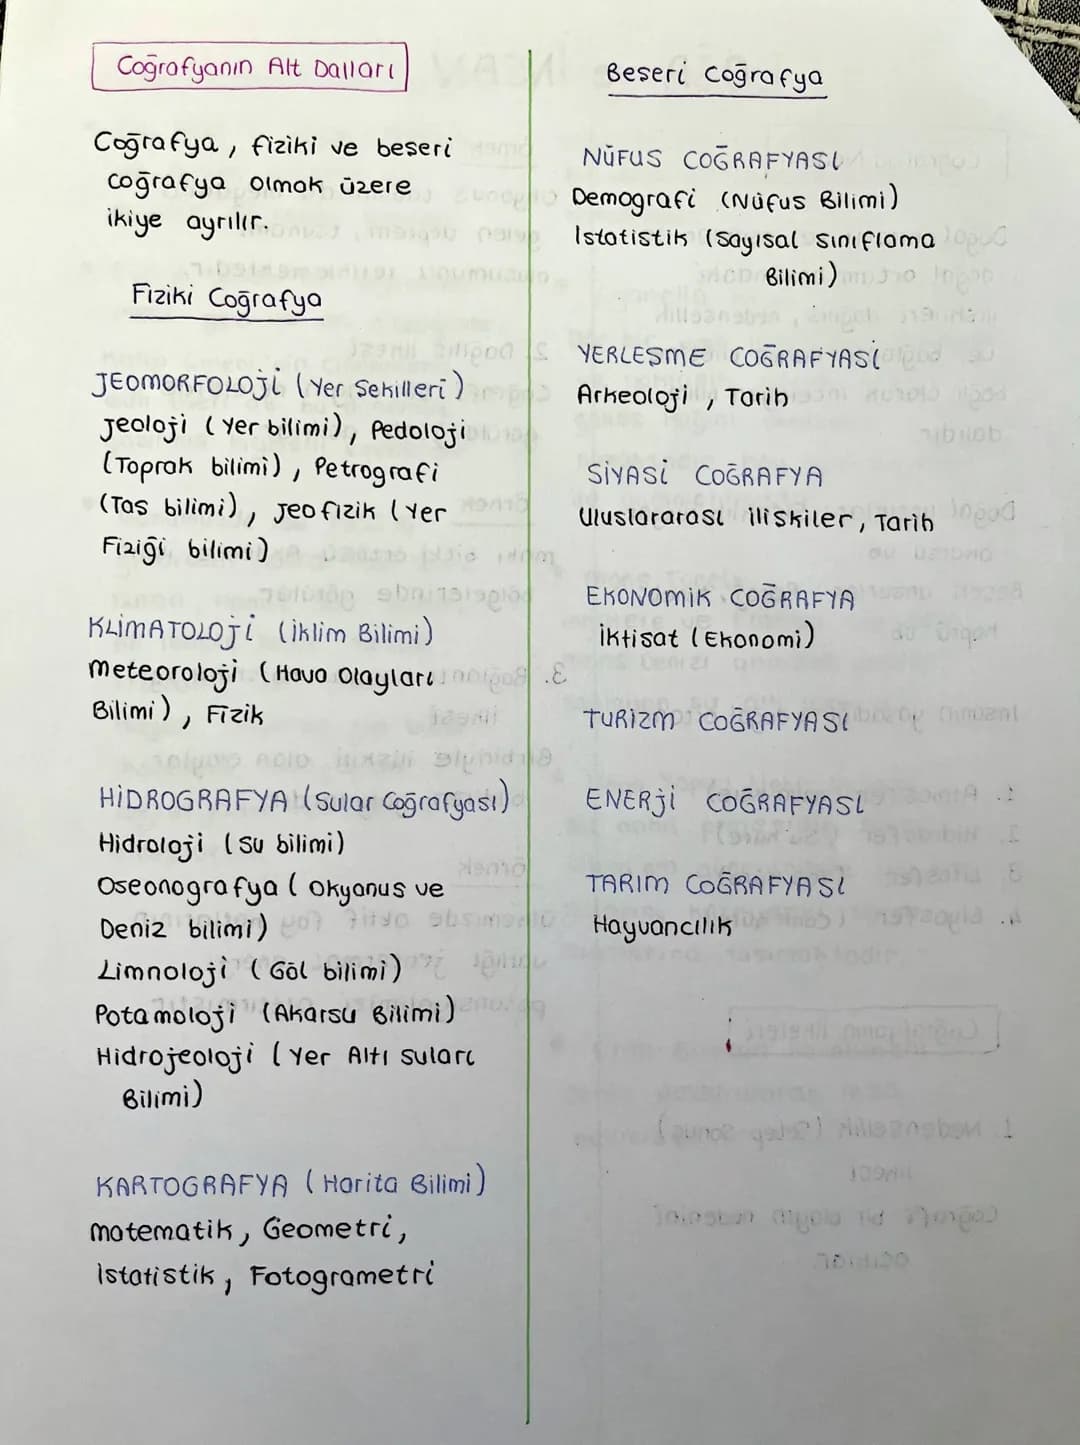 Coğrafyanın Alt Dalları
Coğrafya, fiziki ve beseri
coğrafya olmak üzere
ikiye ayrılır.
Fiziki Coğrafya
JEOMORFOLOJİ (Yer Sekilleri)
Jeoloji (Yer bilimi), Pedoloji
(Toprak bilimi), Petrografi
(Tas bilimi), Jeofizik (Yer
Fiziği bilimi)
KLİMATOLOJİ (iklim Bilimi)
Meteoroloji (Hava Olayları
Bilimi), Fizik
HİDROGRAFYA (Sular Coğrafyası)
Hidroloji (Su bilimi)
Oseonografya (Okyanus ve
Deniz bilimi)
Limnoloji (Göl bilimi)
Potamoloji (Akarsu Bilimi)
Hidrojeoloji (Yer Altı suları
Bilimi)
KARTOGRAFYA (Harita Bilimi)
matematik, Geometri,
istatistik, Fotogrametri
Beseri Coğrafya
NÜFUS COĞRAFYASI
Demografi (Nüfus Bilimi)
İstatistik (Sayısal sınıflama
Bilimi)
YERLESME COĞRAFYASI
Arkeoloji, Tarih
SİYASİ COĞRAFYA
Uluslararası iliskiler, Tarih
EKONOMİK COĞRAFYA
iktisat (Ekonomi)
TURİZM COĞRAFYASI
ENERJİ COĞRAFYASI
TARIM COĞRAFYASI
Hayvancılık